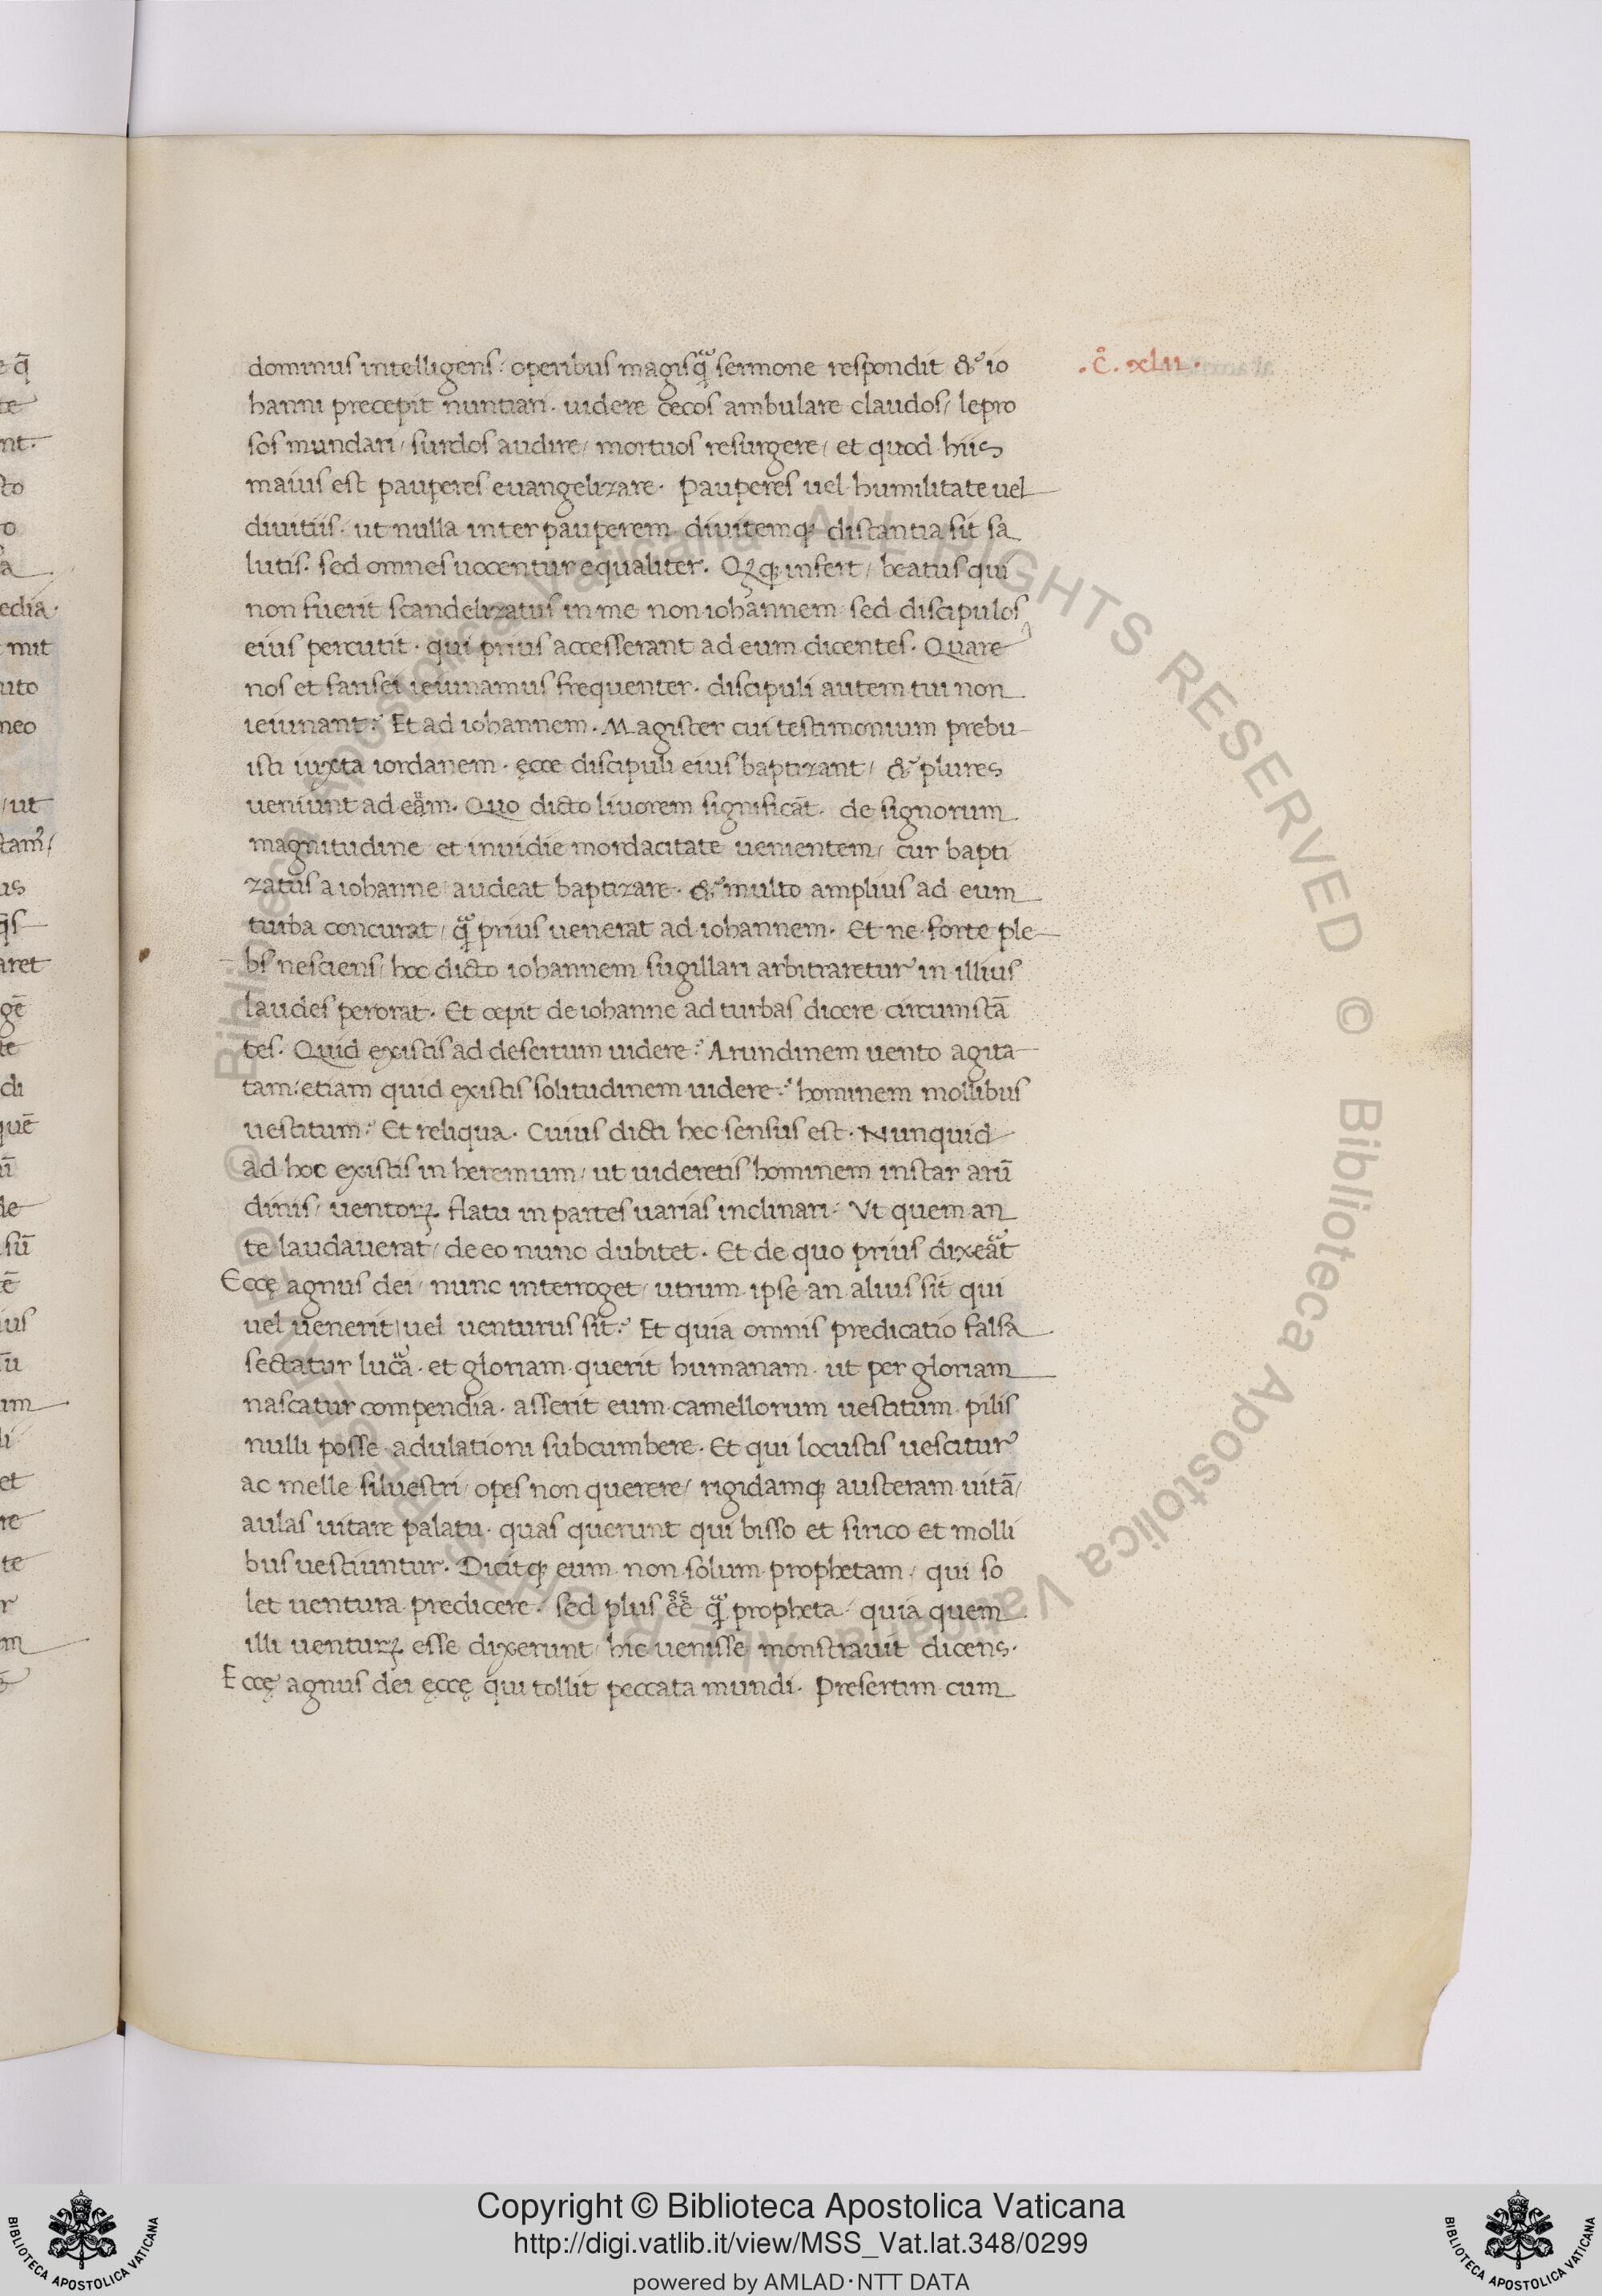 dominus intelligens: operibus magis q̃ sermone respondit & io
.c̊. xlii.
hanni precepit nuntiari. uidere cecos ambulare claudos/ lepro
sos mundari/ surdos audire/ mortuos resurgere/ et quod hiis
maius est pauperes euangelizare. Pauperes uel humilitate uel
diuitiis. ut nulla inter pauperem diuitemq; distantia sit sa
lutis. sed omnes uocentur equaliter. Qꝫq; infert/ beatus qui
non fuerit scandelizatus in me non iohannem sed discipulos
eius percutit. qui prius accesserant ad eum dicentes. Quare
nos et farisei ieiunamus frequenter. discipuli autem tui non
ieiunant? Et ad iohannem. Magister cui testimonium prebu
isti iuxta iordanem. ecce discipuli eius baptizant/ & plures
ueniunt ad eãm. Quo dicto liuorem significãt. de signorum
magnitudine et inuidie mordacitate uenientem/ cur bapti
zatus a iohanne/ audeat baptizare. & multo amplius ad eum
turba concurat/ q̃ prius uenerat ad iohannem. Et ne forte ple
bs nesciens/ hoc dicto iohannem sugillari arbitraretur in illius
laudes perorat. Et cepit de iohanne ad turbas dicere circumstã
tes. Quid existis ad desertum uidere? Arundinem uento agita
tam: etiam quid existis solitudinem uidere? hominem mollibus
uestitum? Et reliqua. Cuius dicti hec sensus est. Nunquid
ad hoc existis in heremum/ ut uideretis hominem instar arũ
dinis/ uentoꝝ flatu in partes uarias inclinari? Vt quem an
te laudauerat/ de eo nunc dubitet. Et de quo prius dixeãt
Eccę agnus dei/ nunc interroget/ utrum ipse an alius sit qui
uel uenerit/ uel uenturus sit? Et quia omnis predicatio falsa
sectatur lucãa. et gloriam querit humanam. ut per gloriam
nascatur compendia. asserit eum camellorum uestitum pilis
nulli posse adulationi subcumbere. Et qui locustis uescitur
ac melle siluestri/ opes non querere/ rigidamq; austeram uitã/
aulas uitare palatu. quas querunt qui bisso et sirico et molli
bus uestiuntur. Dicitq; eum non solum prophetam/ qui so
let uentura predicere. sed plus ẽẽ q̃ propheta/ quia quem
illi uenturꝝ esse dixerunt/ hic uenisse monstrauit dicens.
Eccę agnus dei ęccę qui tollit peccata mundi. Presertim cum
e q̃
te
nt.
sto
o
a
edia.
mit
uto
neo
/ut
tam/
us
q̃s
aret
gẽ
te
di
quẽ
ĩ
de
sũ
tẽ
ius
ũ
um
li
et
re
te
r
m
© Biblioteca Apostolica Vaticana ALL RIGHTS RESERVED © Biblioteca Apostolica Vaticana ALL RIGHTS RESERVED
Copyright © Biblioteca Apostolica Vaticana
http://digi.vatlib.it/view/MSS_Vat.lat.348/0299
powered by AMLAD·NTT DATA
BIBLIOTECA APOSTOLICA VATICANA
BIBLIOTECA APOSTOLICA VATICANA